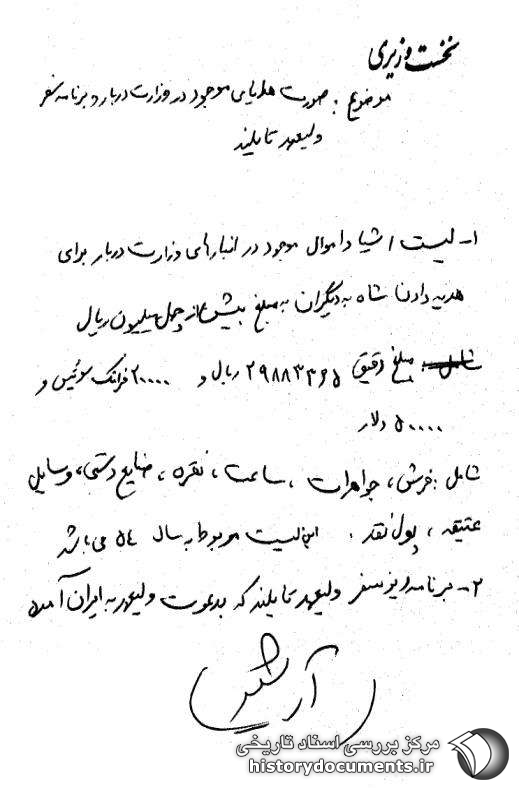 نخست وزیری
موضوع: صورت هدایای موجود در وزارت دربار و برنامه سفر
ولیعهد تایلند
۱- لیست اشیا و اموال موجود در انبارهای وزارت دربار برای
هدیه دادن شاه به دیگران به مبلغ بیش از چهل میلیون ریال
شامل: مبلغ دقیق ۲۹۸۸۳۳۶۵ ریال و ۲۰۰۰۰ فرانک سوئیس و
۵۰۰۰۰ دلار
شامل: فرش، جواهرات، ساعت، نقره، صنایع دستی، وسایل
عتیقه، پول نقد. این لیست مربوط به سال ۵۴ می باشد
۲- برنامه ریز سفر ولیعهد تایلند که بدعوت ولیعهد به ایران آمده
آرشیو
مرکز بررسی اسناد تاریخی
historydocuments.ir